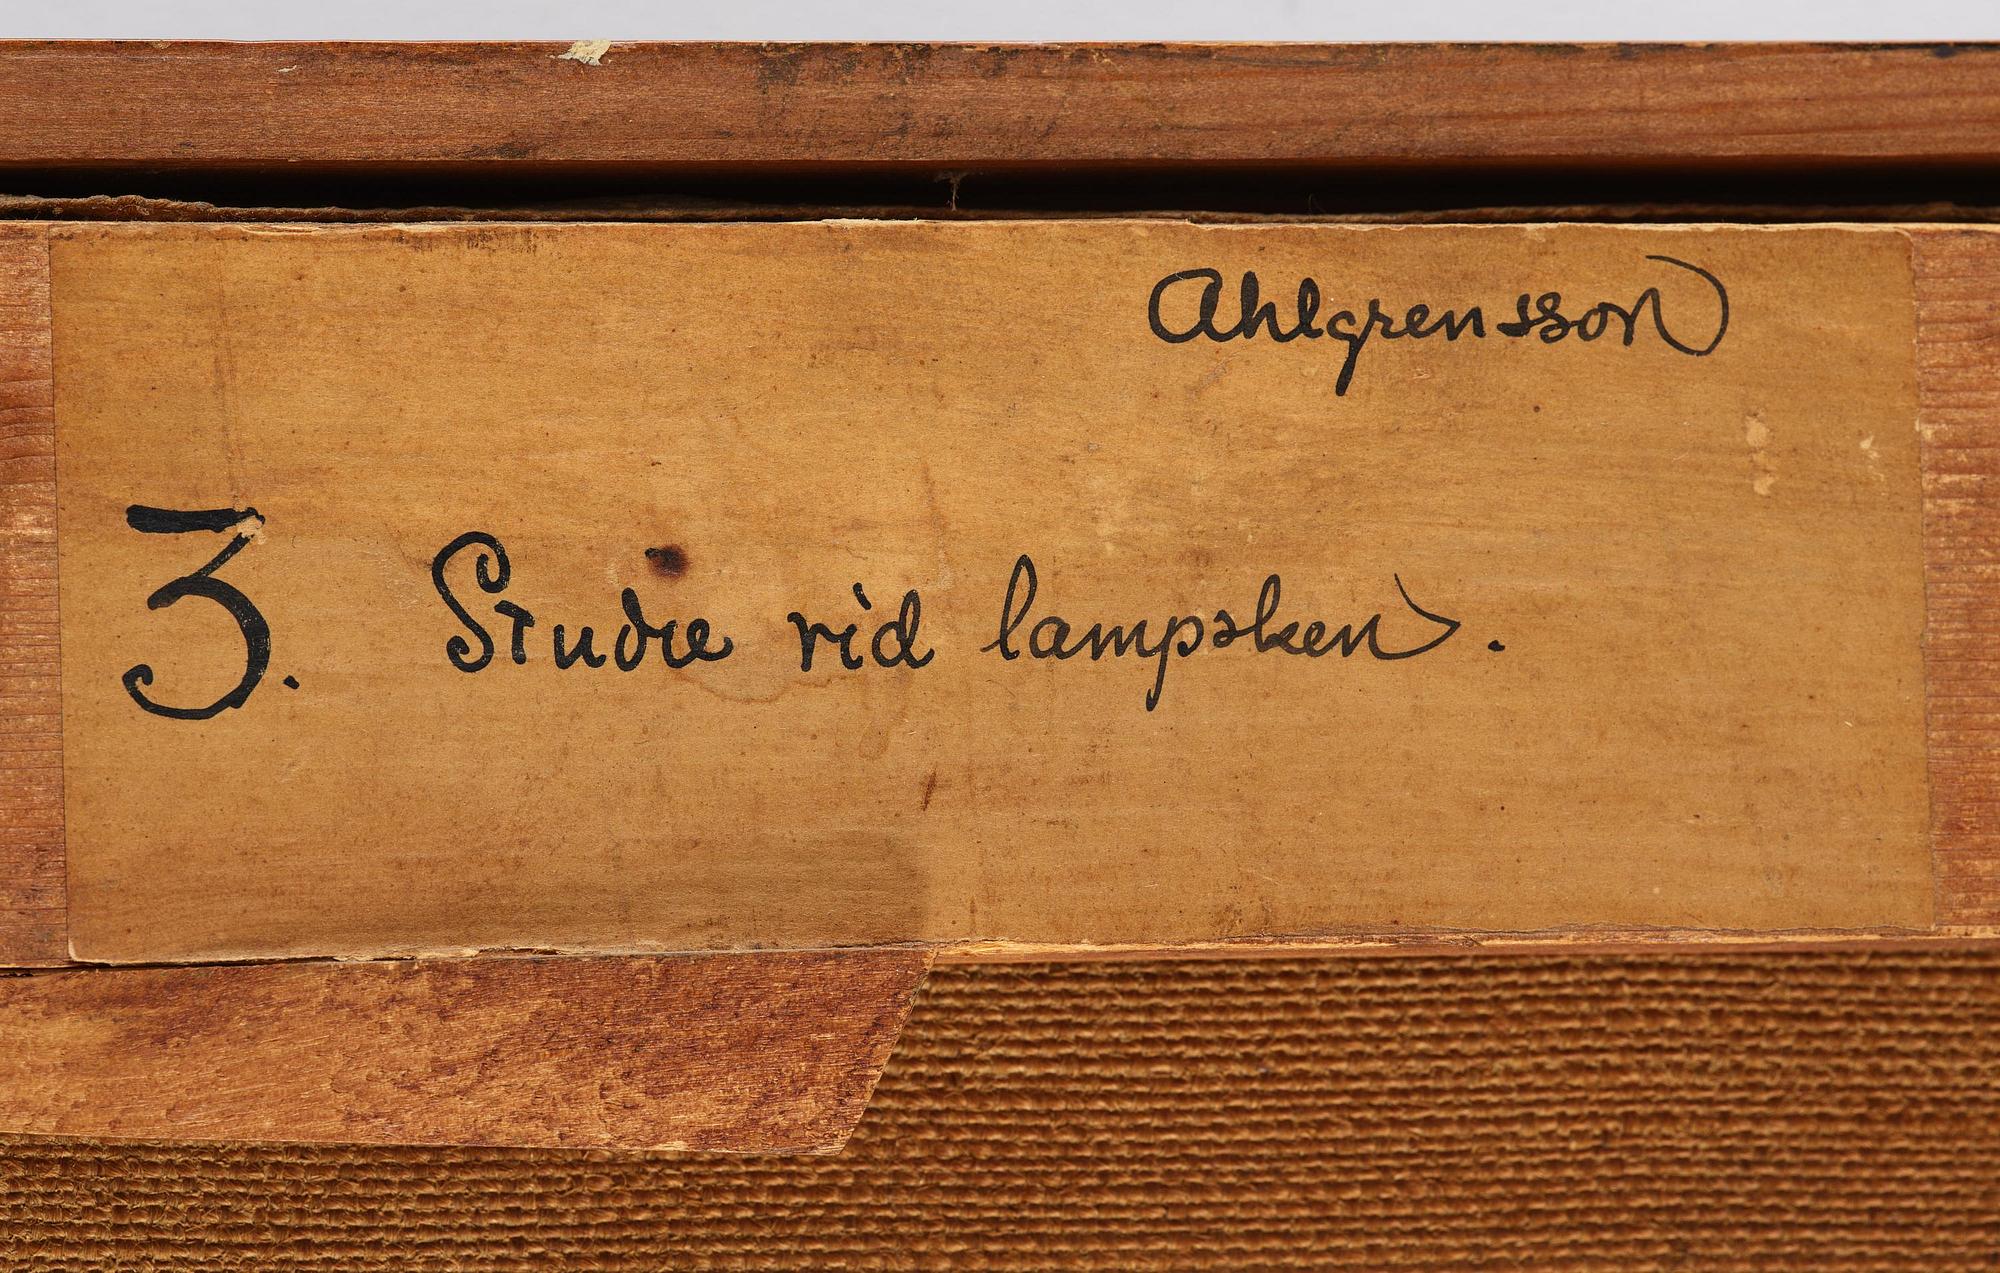 Ahlgrensson
3. Studie vid lampsken.